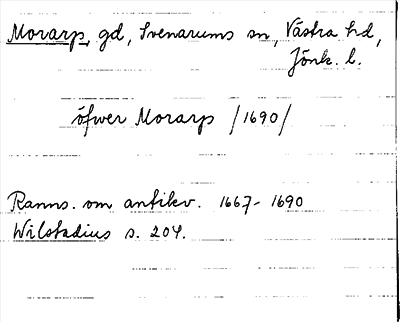 Morarp, gd, Svenarums sn, Västra hd,
Jönk. l.
öfwer Morarp /1690/
Ranns. om antikv. 1667-1690
Wilstadius s. 204.